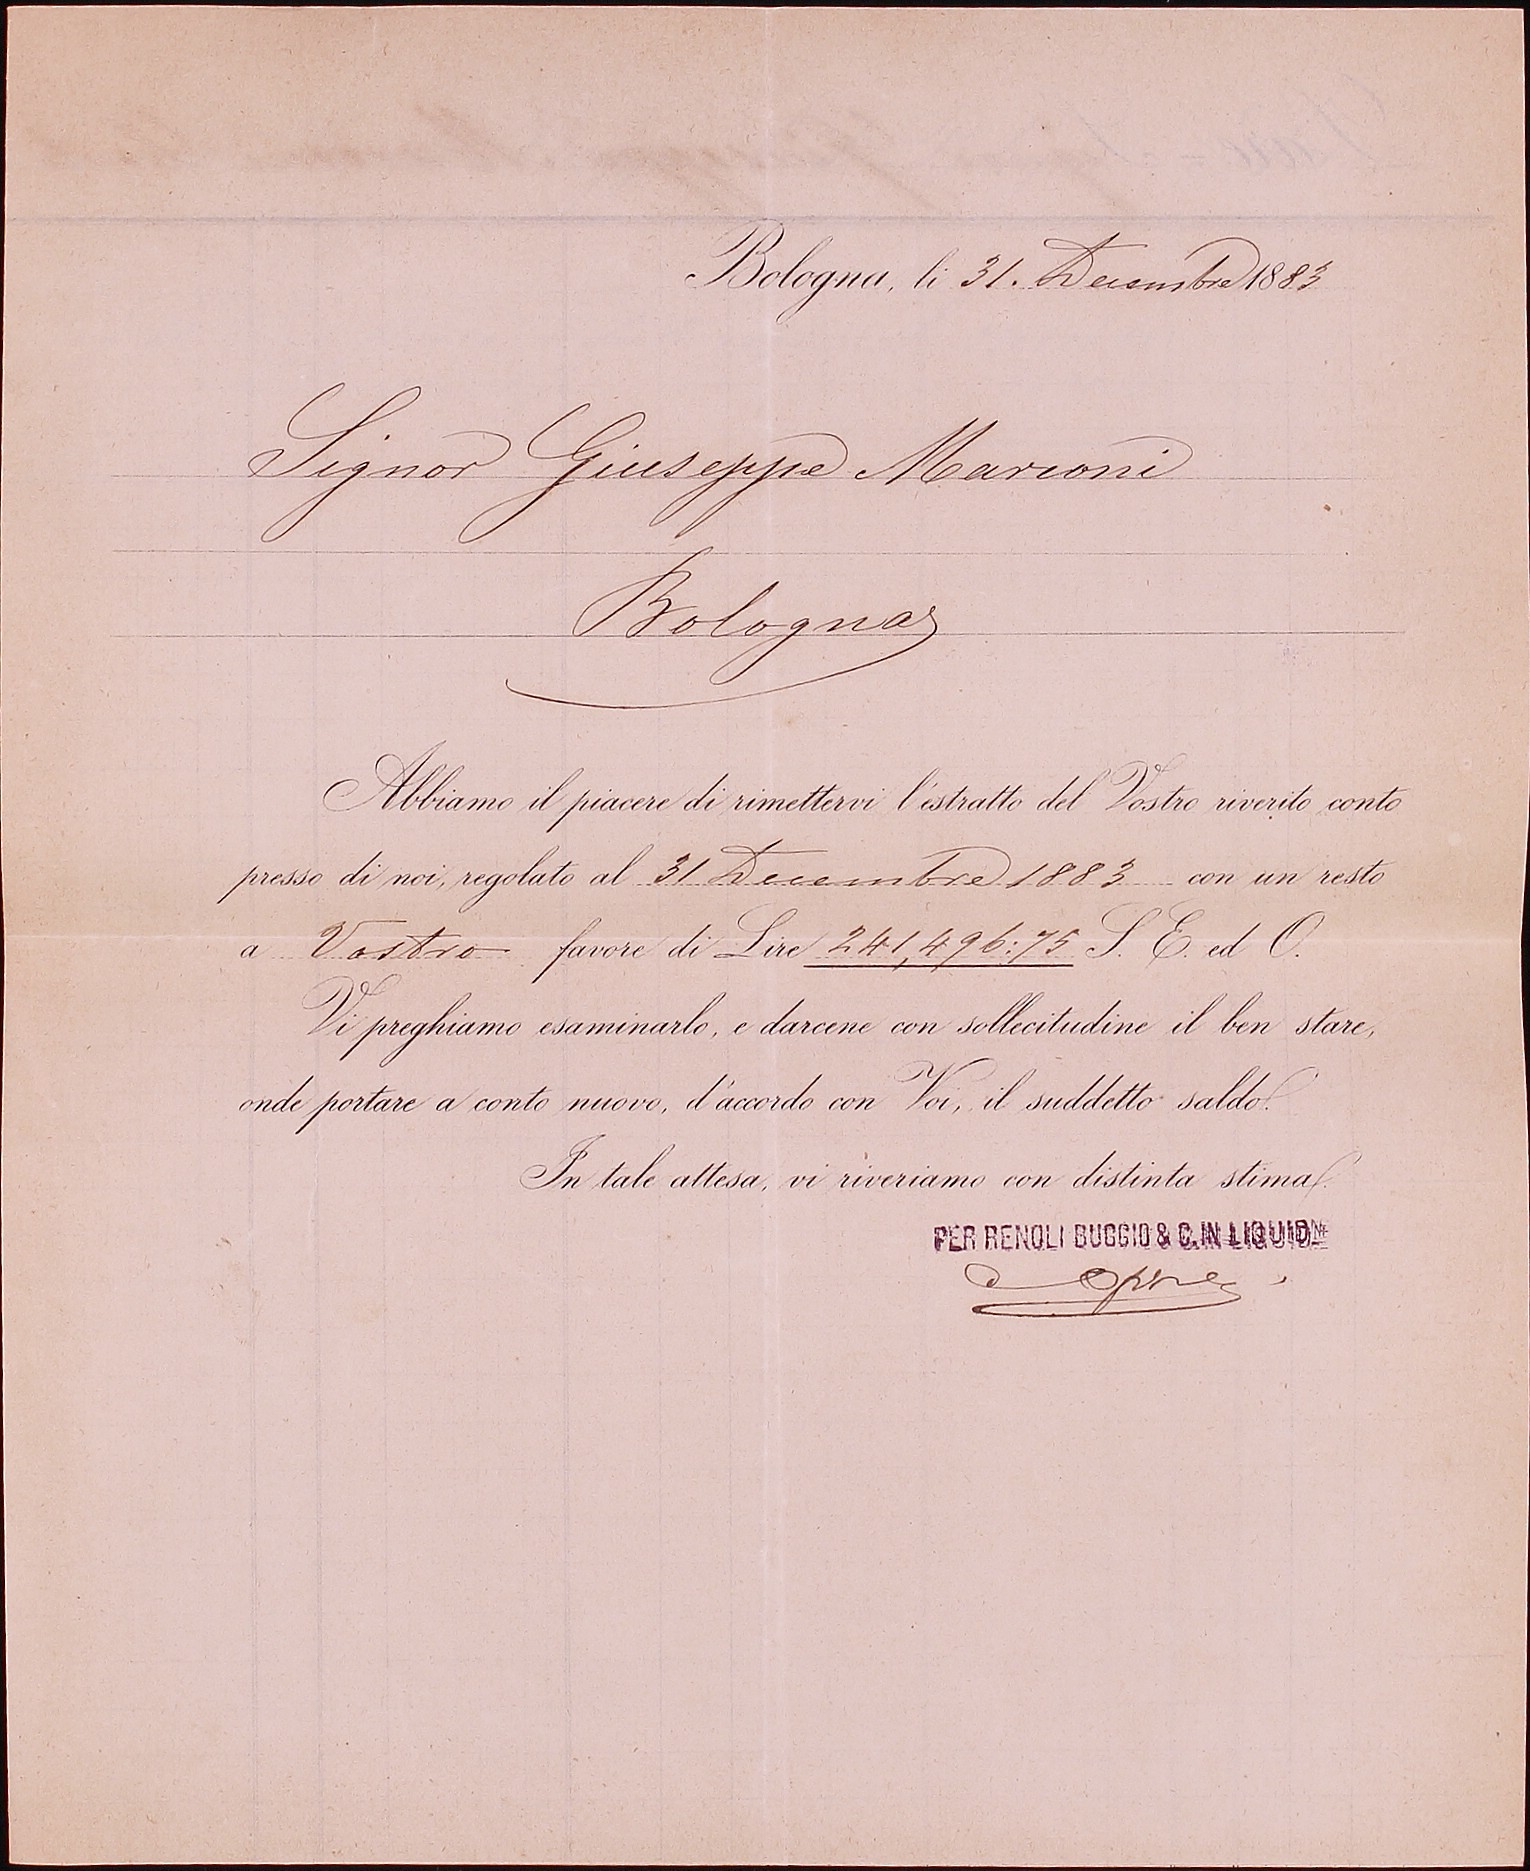 Bologna, li 31. Decembre 1883
Signor Giuseppe Marconi
Bologna
Abbiamo il piacere di rimettervi l'estratto del Vostro riverito conto
presso di noi, regolato al 31 Decembre 1883 con un resto
a Vostro favore di Lire 241,496:75 S. E. ed O.
Vi preghiamo esaminarlo, e darcene con sollecitudine il ben stare,
onde portare a conto nuovo, d'accordo con Voi, il suddetto saldo.
In tale attesa, vi riveriamo con distinta stima.
PER RENOLI BUGGIO & C. IN LIQUIDNE